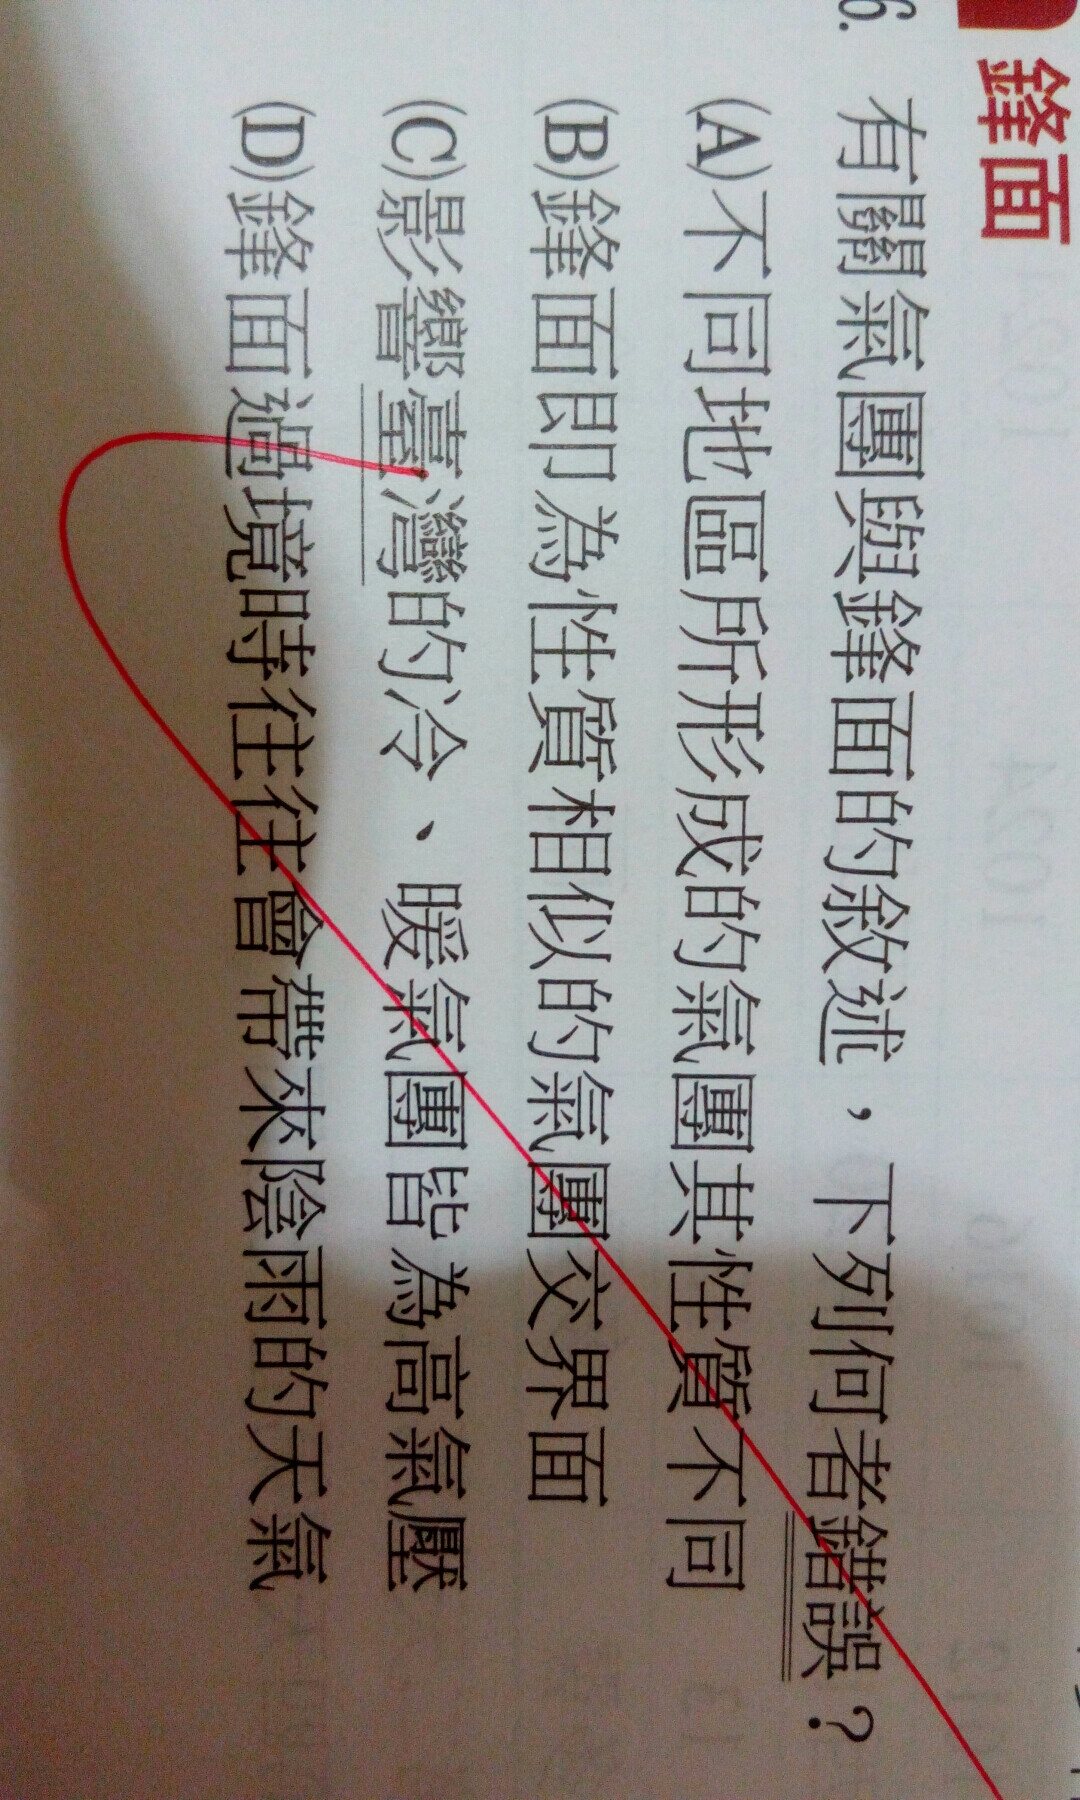 鋒面
6. 有關氣團與鋒面的敘述，下列何者錯誤？
(A)不同地區所形成的氣團其性質不同
(B)鋒面即為性質相似的氣團交界面
(C)影響臺灣的冷、暖氣團皆為高氣壓
(D)鋒面過境時往往會帶來陰雨的天氣